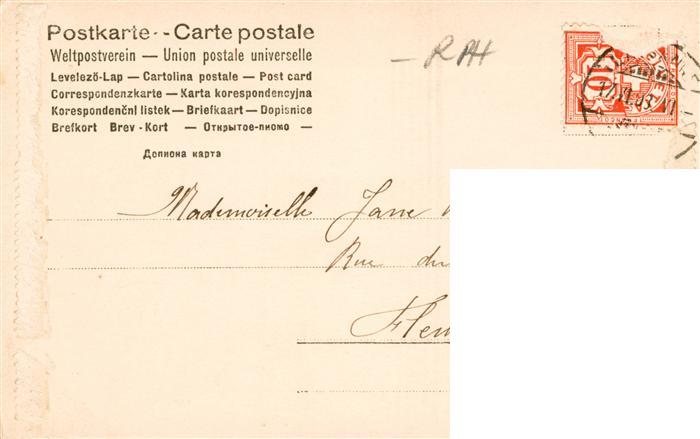 Postkarte - Carte postale
Weltpostverein — Union postale universelle
Levelező-Lap — Cartolina postale — Post card
Correspondenzkarte — Karta korespondencyjna
Korespondenční listek — Briefkaart — Dopisnice
Brefkort Brev-Kort — Открытое-писмо —
Дописна карта
— RAH
10
Mademoiselle Jane
Rue du